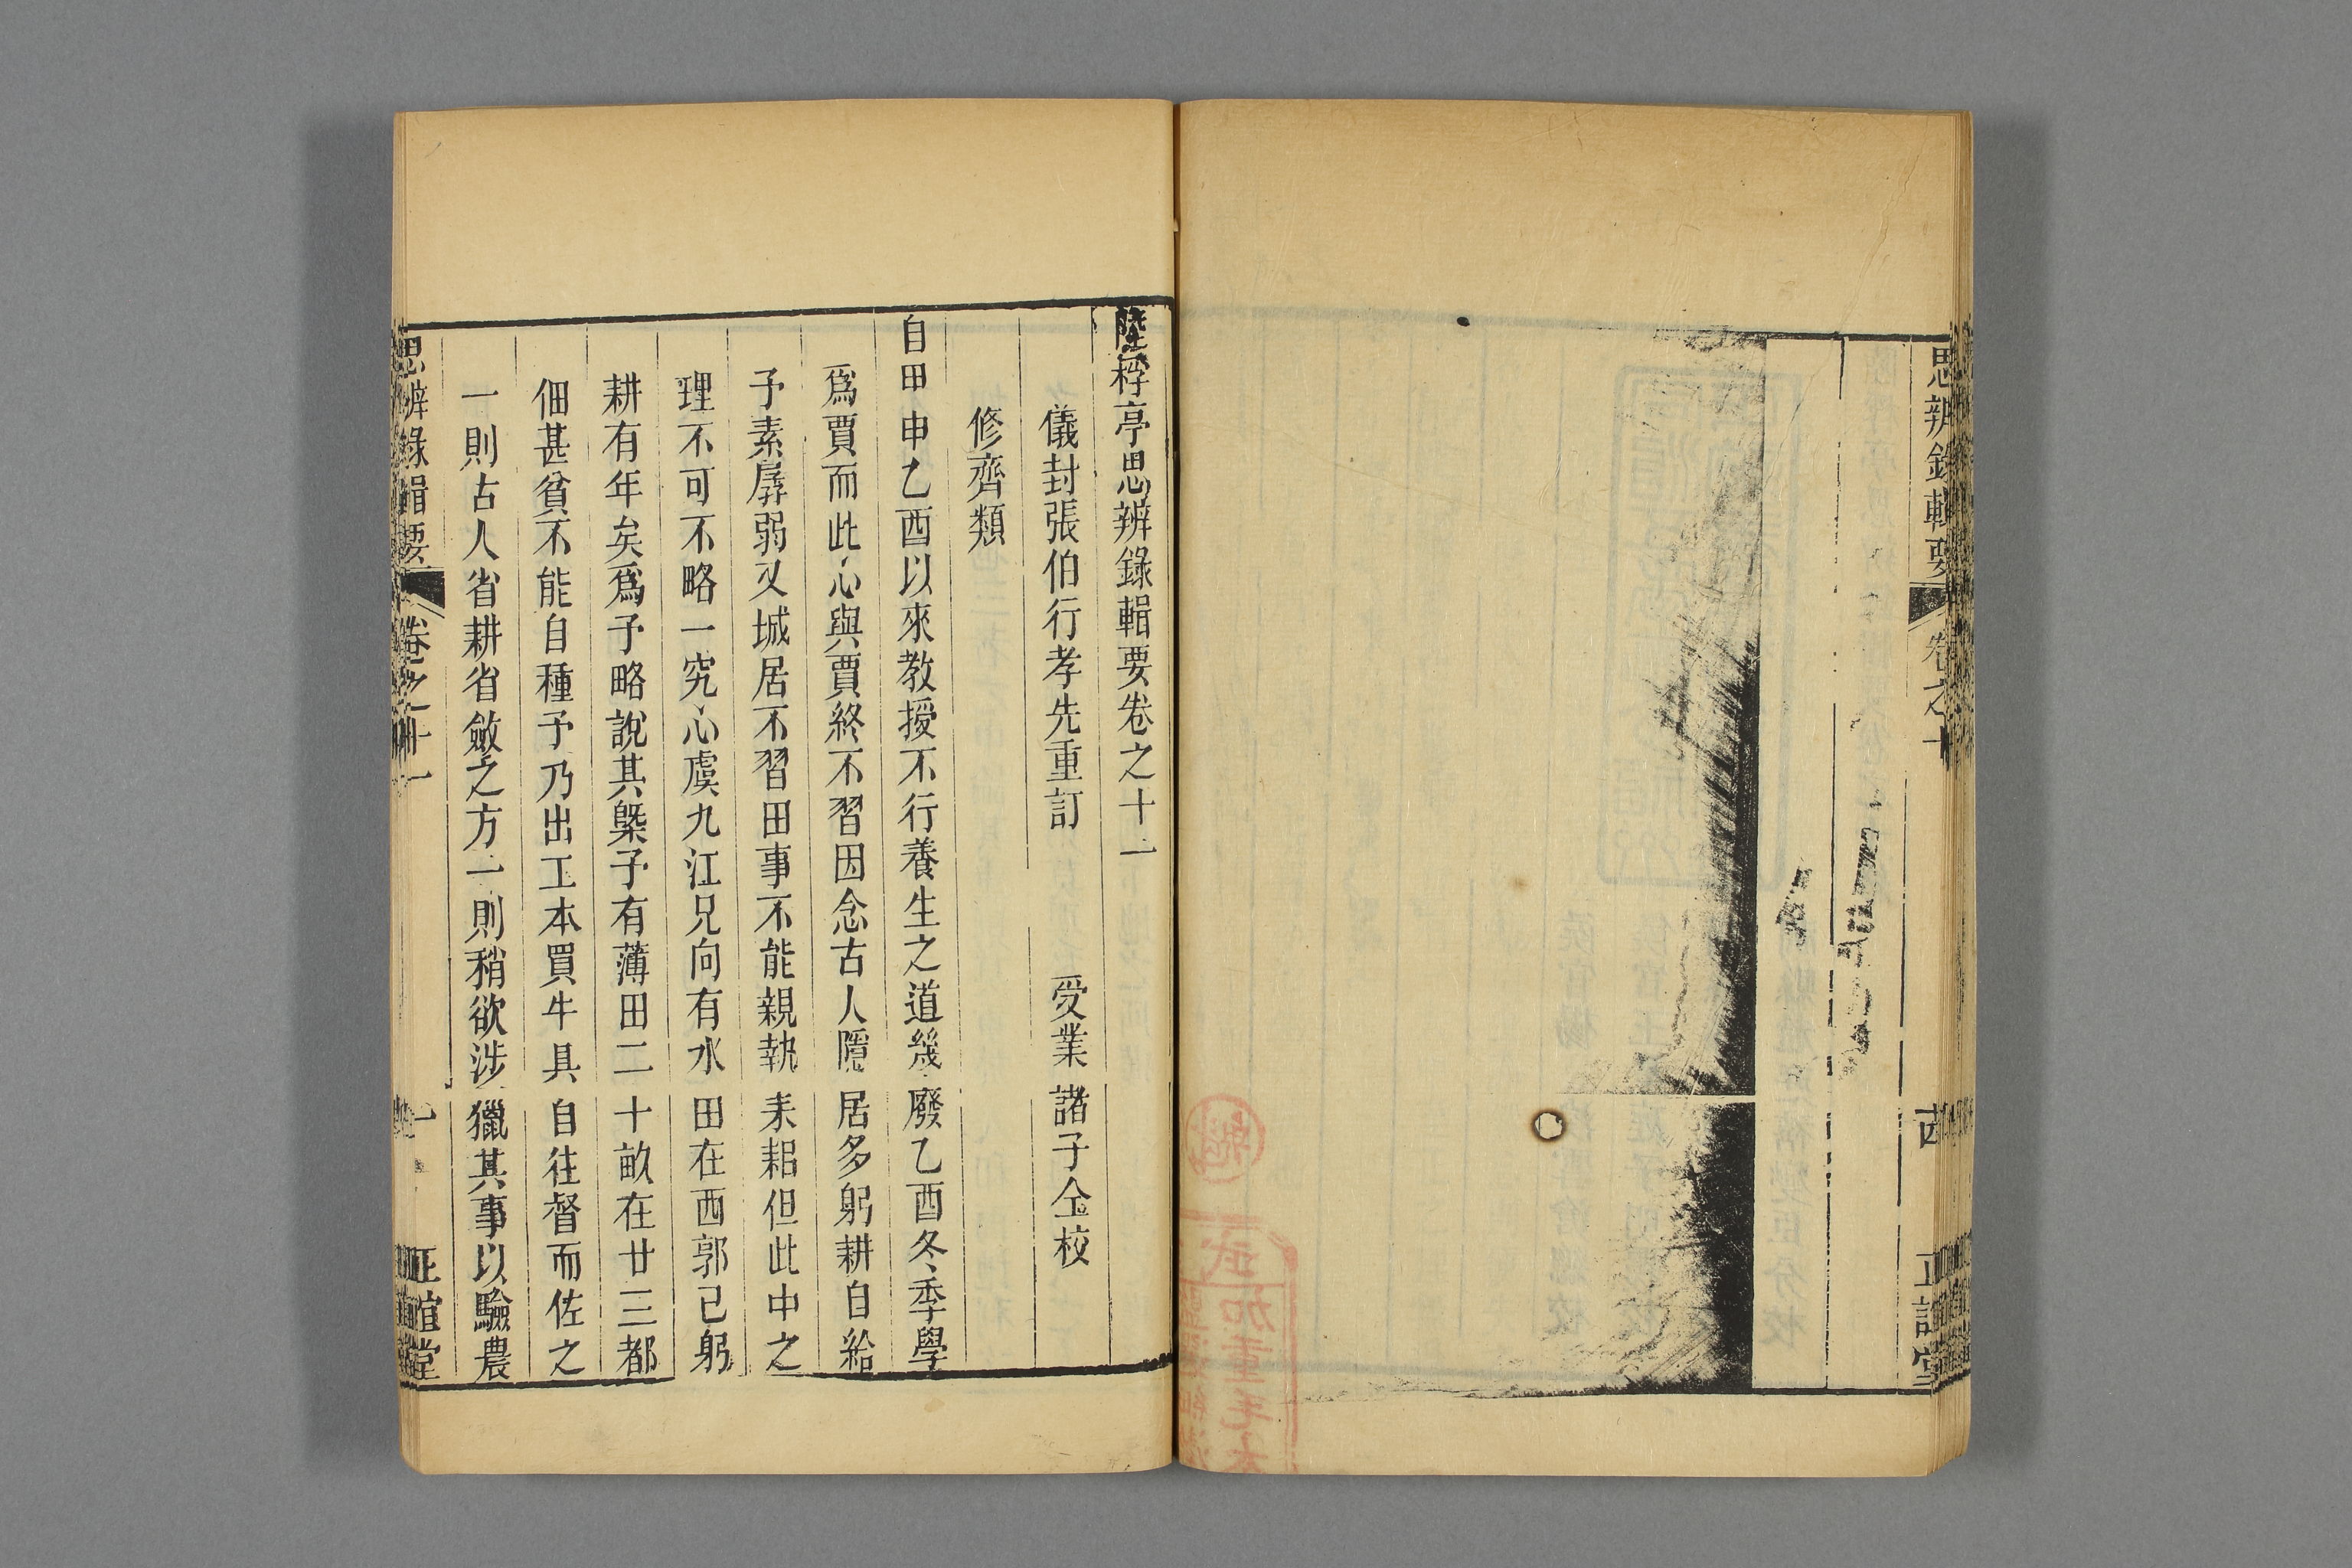 思辨錄輯要
卷之十
正誼堂
陸桴亭思辨錄輯要卷之十一
儀封張伯行孝先重訂 受業諸子仝校
修齊類
自甲申乙酉以來教授不行養生之道幾廢乙酉冬季學
爲賈而此心與賈終不習因念古人隱居多躬耕自給
予素孱弱又城居不習田事不能親執耒耜但此中之
理不可不略一究心虞九江兄向有水田在西郭已躬
耕有年矣爲予略說其槩予有薄田二十畝在廿三都
佃甚貧不能自種予乃出工本買牛具自往督而佐之
一則古人省耕省斂之方一則稍欲涉獵其事以驗農
思辨錄輯要
卷之十一
一
正誼堂